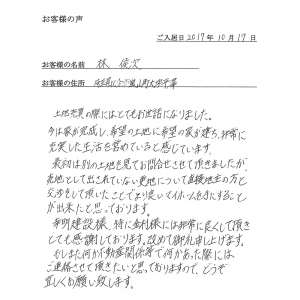 お客様の声
ご入居日 2017年 10月 17日
お客様の名前 林 俊次
お客様の住所
土地売買の際にはとてもお世話になりました。
今は家が完成し、希望の土地に希望の家が建ち、非常に
充実した生活を営めていると感じています。
最初は別の土地を見てお問合せさせて頂きましたが、
売地として出されていない更地について直接地主の方と
交渉をして頂いたことでより良いマイホームを手にすることが
が出来たと思っております。
建設様、特に 様には非常に良くして頂き
とても感謝しております。改めて御礼申し上げます。
もしまた何か不動産関係等で何かあった際には
ご連絡させて頂きたいと思っておりますので、どうぞ
宜しくお願い致します。